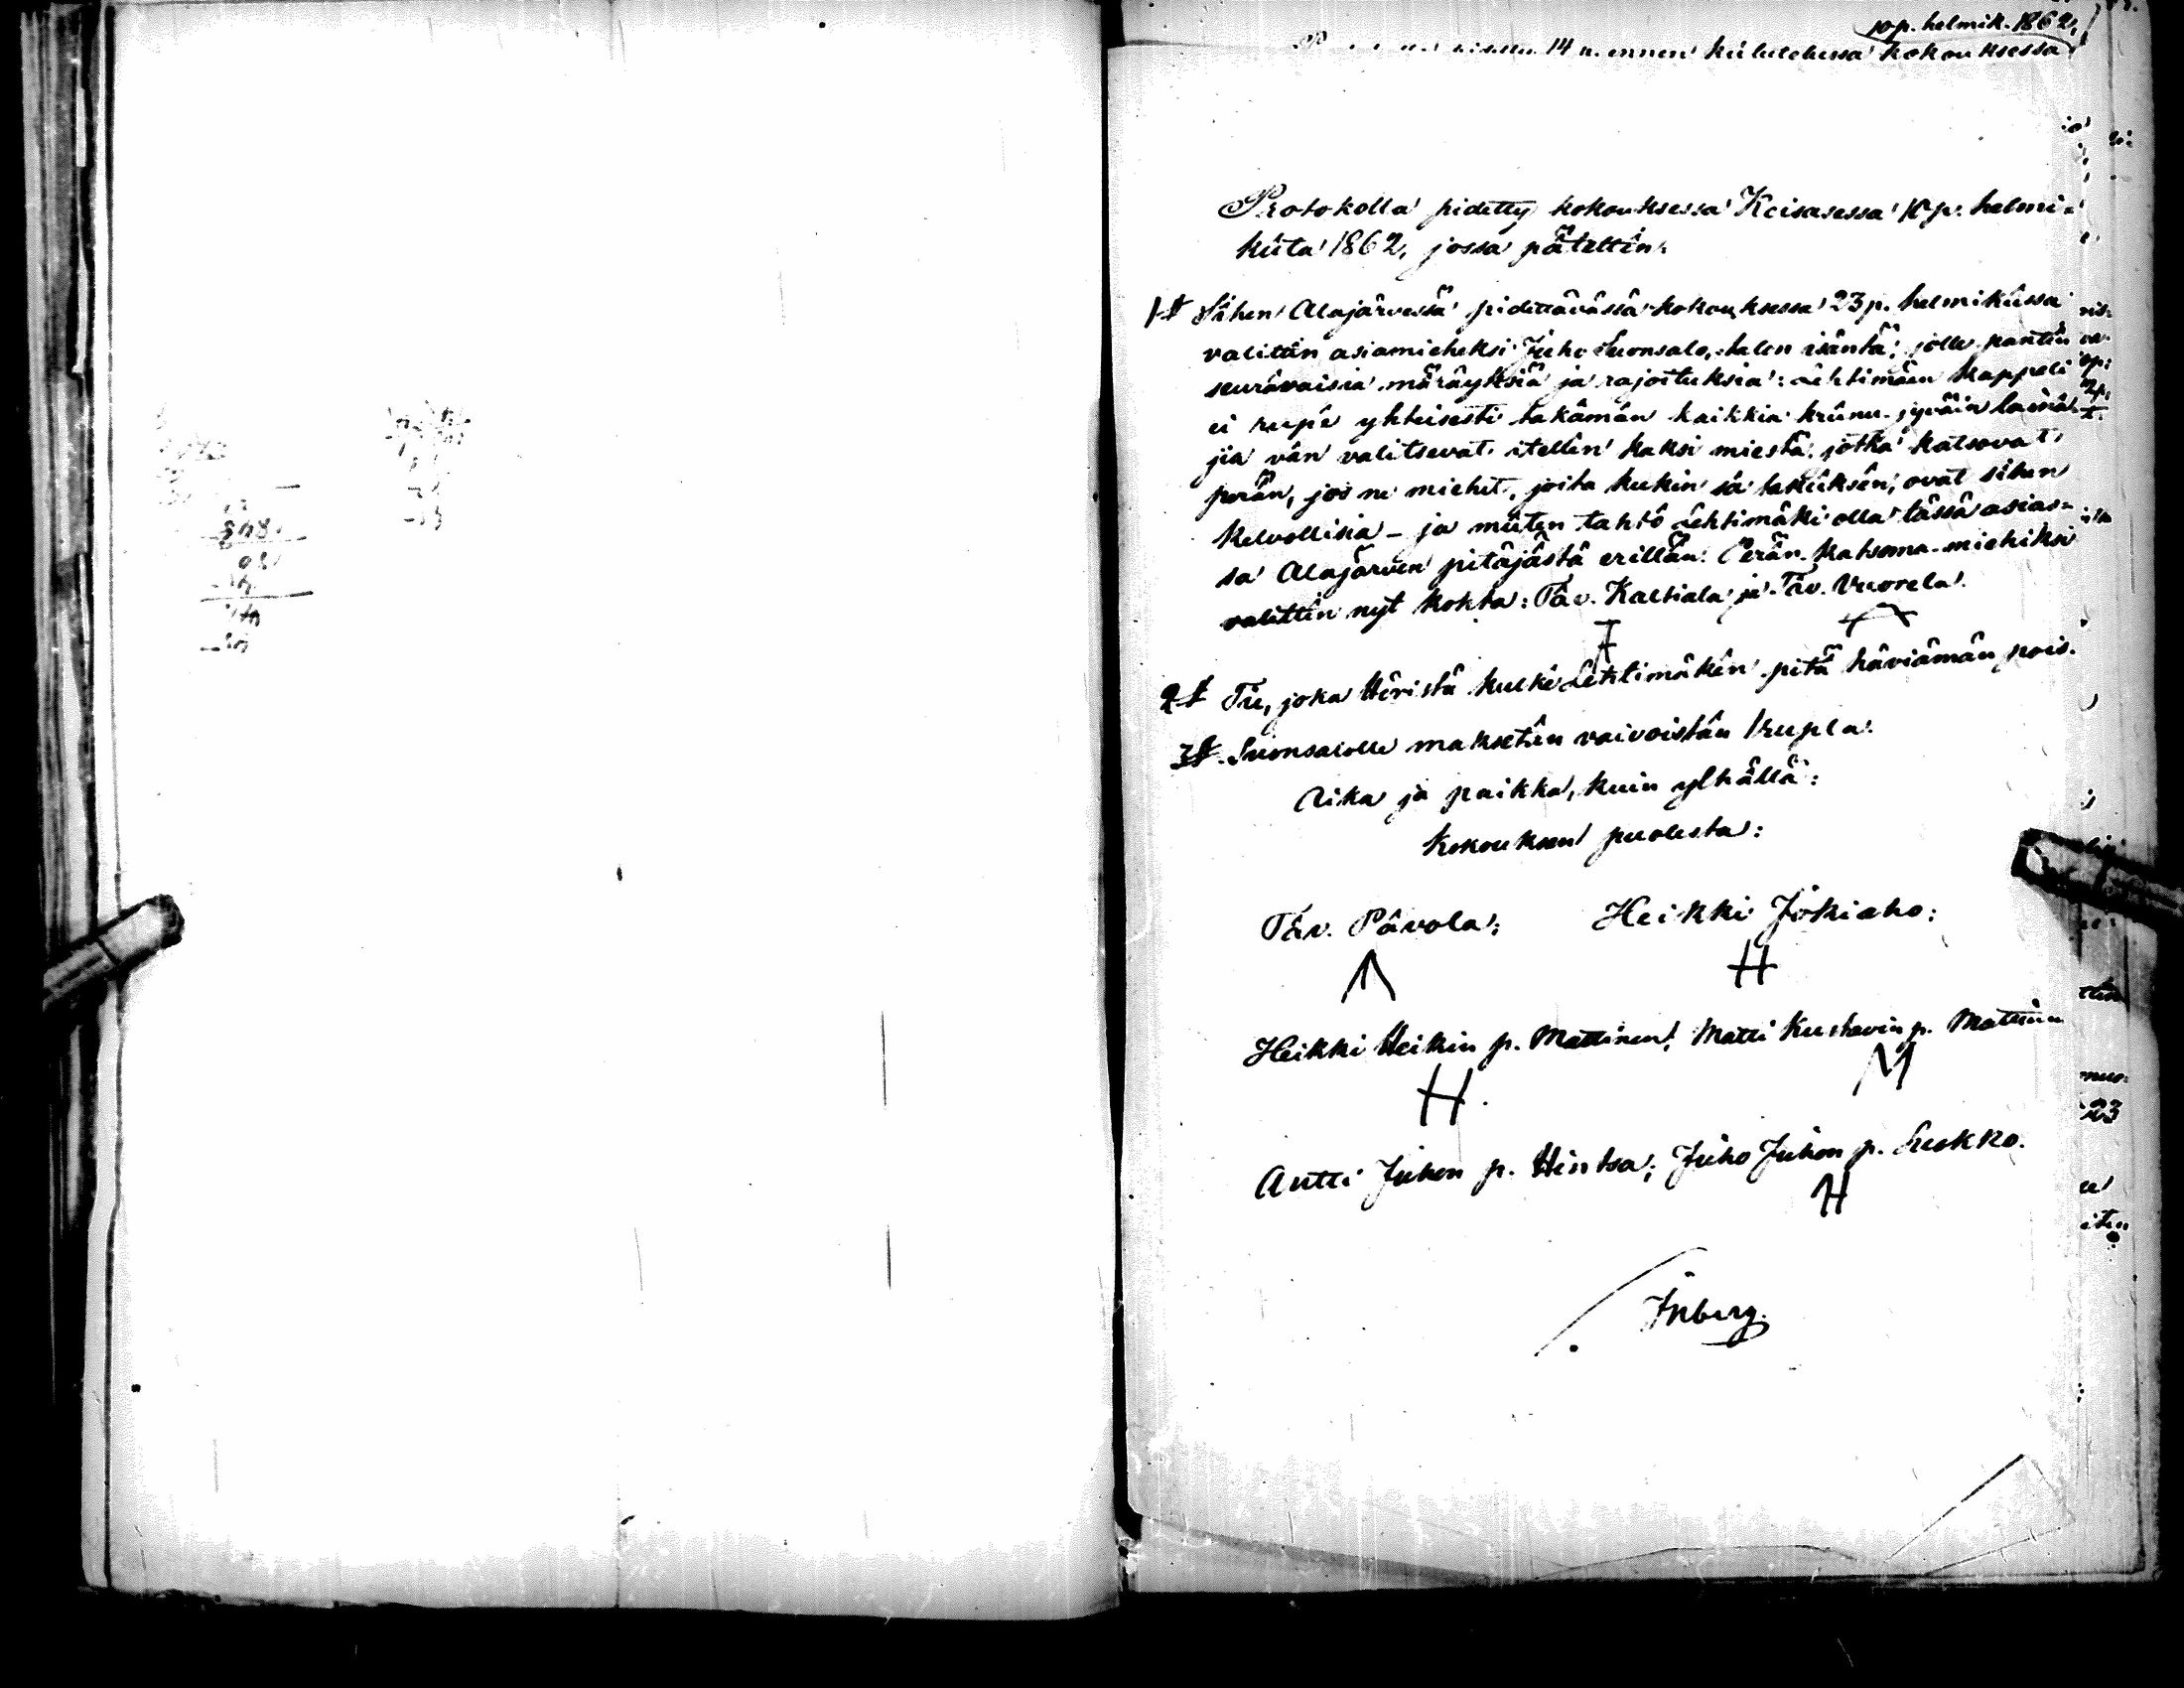 10 p. helmik. 1862,
14 p. ennen kûlutetussa kokouksessa
Protokolla pidetty kokouksessa Keisasessa 10 p. helmi-
kûta 1862, jossa pätettîn:
1§ Sîhen Alajärvessä pidettävässä kokouksessa 23 p. helmikûssa
valittîn asiamieheksi Juho Suonsalo, talon isäntä; jolle pantîn
seurâvaisia mâräyksiä ja rajoituksia: Lehtimäen kappeli
ei rupê yhteisesti takâmân kaikkia krûnu-jyväin lainâ-
jia vân valitsevat itellên kaksi miestä, jotka katsovat
perân, jos ne miehet, joita kukin sâ takûksên, ovat sîhen
kelvollisia – ja mûten tahtô Lehtimäki olla tässä asias-
sa Alajärven pitäjästä erillän. Perän-katsoma-miehiksi
valittîn nyt kohta: Tâv. Kaltiala ja Tâv. Vuorela.
2§ Tie, joka Hôristä kulkê Lehtimäkên pitä häviämän pois.
3§. Suonsalolle maksetân vaivoistân 1 rupla.
Aika ja paikka, kuin ylhällä:
Kokouksen puolesta:
Tâv. Pâvola; Heikki Jokiaho;
Heikki Heikin p. Mattinen; Matti Kustavin p. Mattinen
H. M
Antti Juhon p. Hintsa; Juho Juhon p. Sukko.
H